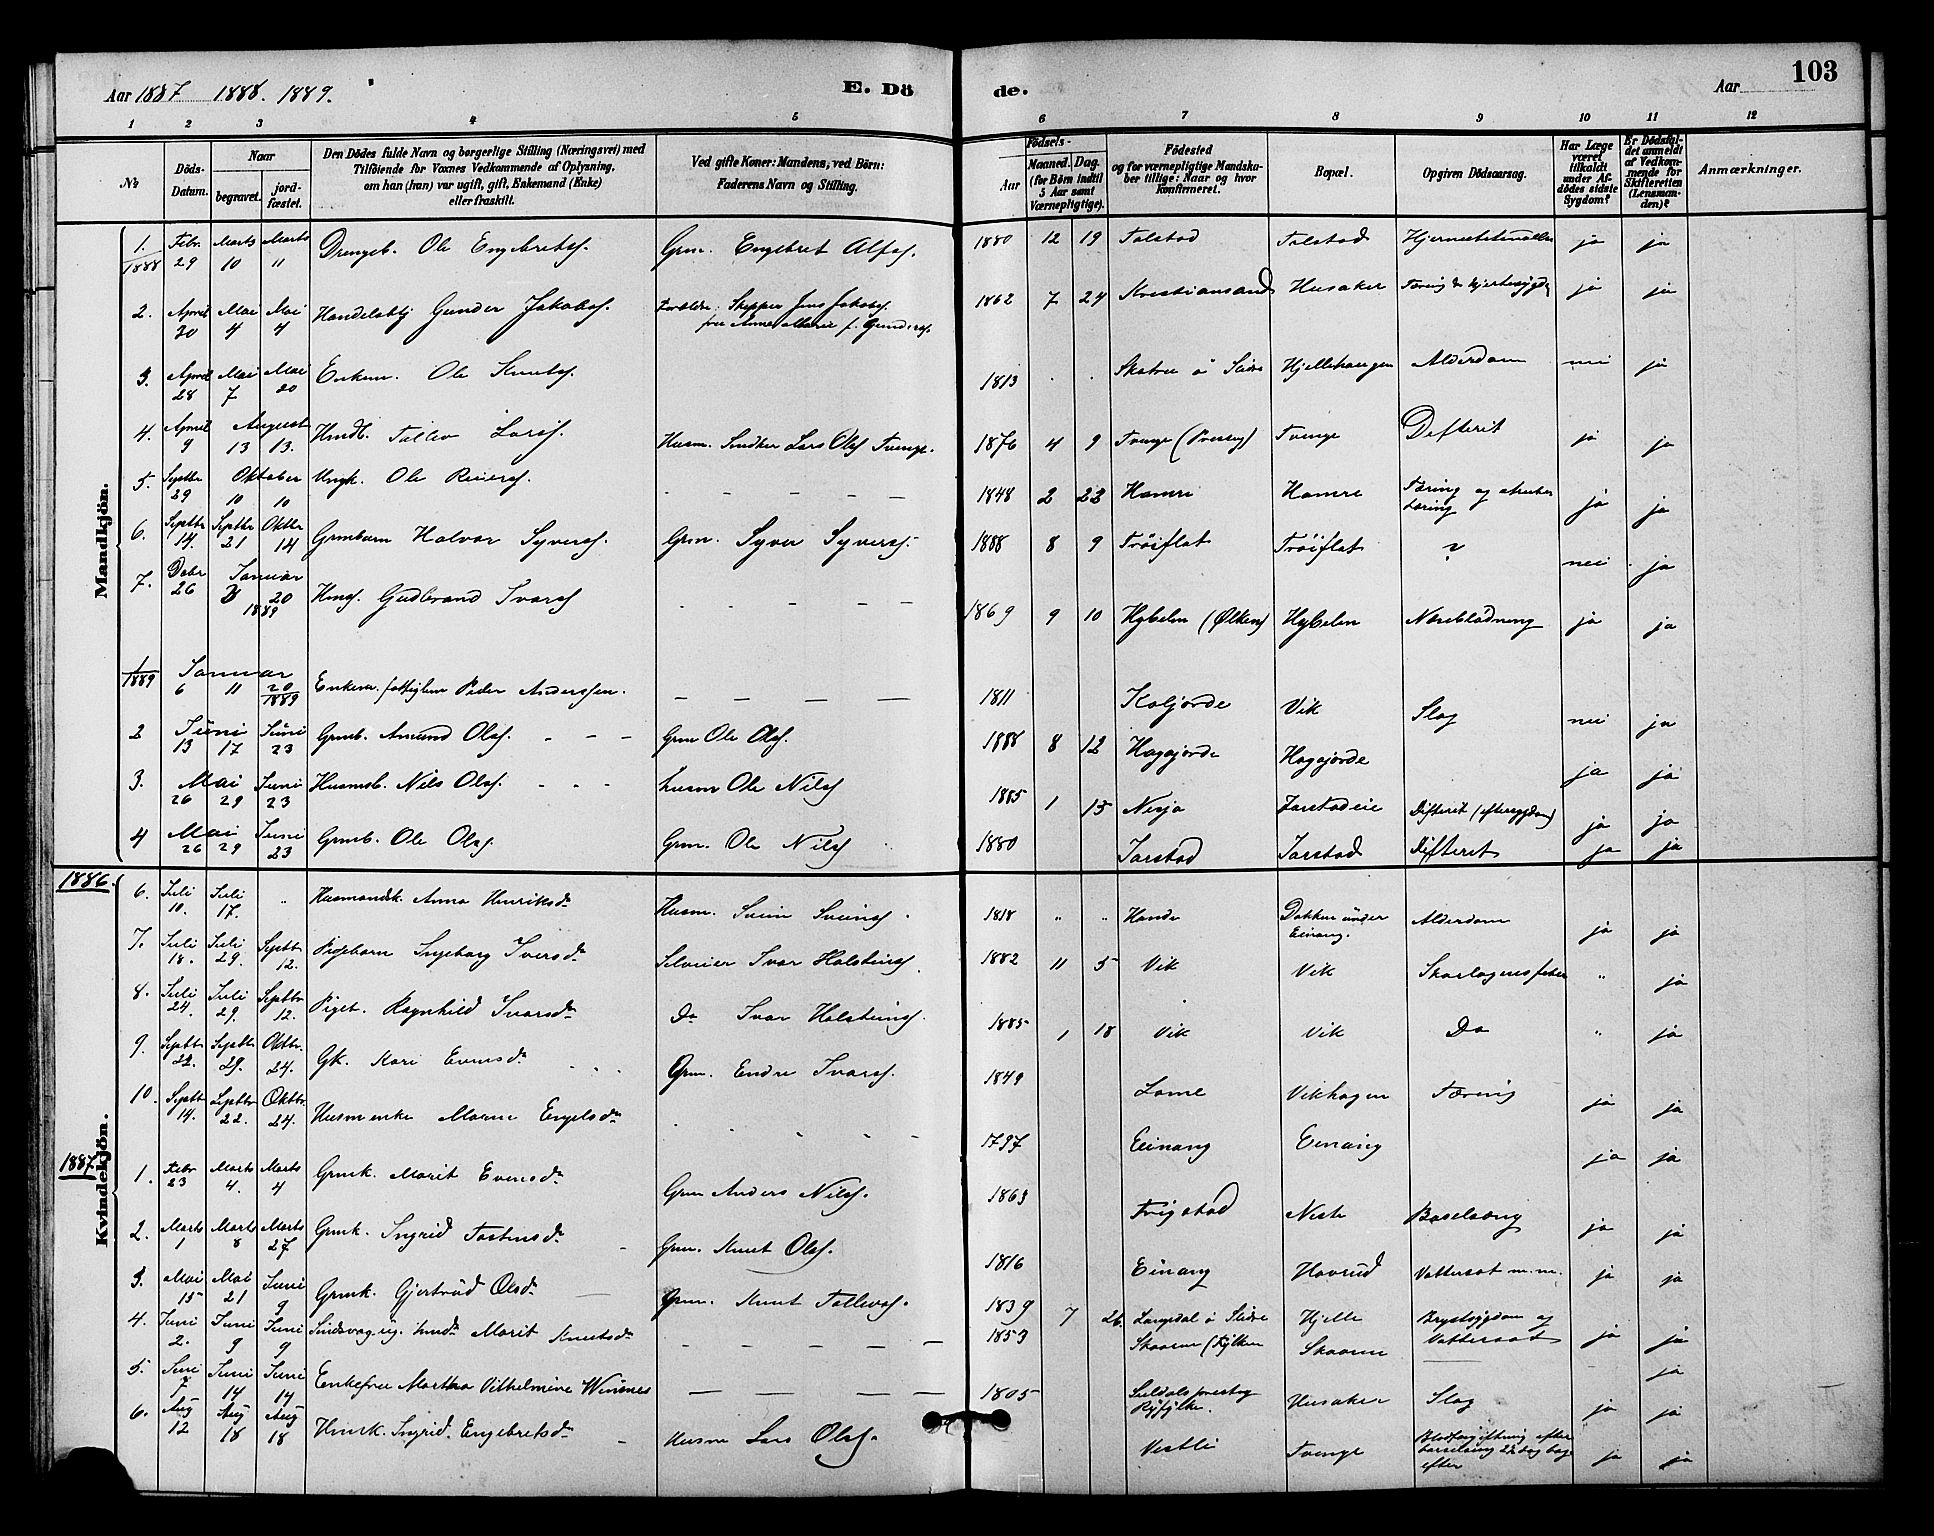 Aar 1887 1888. 1889.
E. Dö
de.
Aar
103
1 2 3 4 5 6 7 8 9 10 11 12
№
Döds-Datum.
Naar
begravet.
jord-fæstet.
Den Dödes fulde Navn og borgerlige Stilling (Næringsvei) med
Tilföiende for Voxnes Vedkommende af Oplysning,
om han (hun) var ugift, gift, Enkemand (Enke)
eller fraskilt.
Ved gifte Koner: Mandens, ved Börn:
Faderens Navn og Stilling.
Födsels-
Aar
Maaned. Dag.
(for Börn indtil
5 Aar samt
Værnepligtige).
Födested
og for værnepligtige Mandska-
ber tillige: Naar og hvor
konfirmeret.
Bopæl.
Opgiven Dödsaarsag.
Har Læge
været
tilkaldt
under Af-
dödes sidste
Sygdom?
Er Dödsfal-
det anmeldt
af Vedkom-
mende for
Skifteretten
(Lensman-
den)?
Anmærkninger.
Mandkjön.
1. 1888 Febr. 29 Marts 10 Marts 11 Drengeb. Ole Engebrets. Grm. Engebret Alfs. 1880 12 19 Tolstad Tolstad ja ja
2. April 20 Mai 4 Mai 4 Gunder Jakobs. Skipper Jens Jakobs. 1862 7 24 Kristiansand Husaker Tæring & hjertesygd. ja ja
3. April 28 Mai 7 Mai 20 Enkem. Ole Knuts. 1813 . . i Slidre Hjellehaugen Alderdom nei ja
4. April 9 August 13 13. Tollev Lars. Husm. Snidker Lars Ols. Tvenge. 1876 4 9 Tvenge Tvenge Difterit ja ja
5. Septbr 29 Oktober 10 10 Ungk. Ole Reiers. — — — — 1848 2 23 Hamre Hamre Tæring og ja ja
6. Septbr 14. Septbr 21 Oktbr 14 Grmbarn Halvor Syvers. Grm. Syver Syvers. 1888 8 9 Tröiflat Tröiflat ? nei ja
7. Decbr 26 Januar 20 1889 Gudbrand Ivars. — — — 1869 9 10 Hybelen Hybelen Næseblödning ja ja
1/1889 Januar 6 11 20 1889 Enkem. Peder Anderssen. — — — — 1811 Koljorde Vik Slag nei ja
2 Juni 13 17 Juni 23 Grmb. Amund Ols. Grm Ole Ols. 1888 8 12 Hagajorde Hagajorde ja ja
3. Mai 26 29 Juni 23 Husmsb. Nils Ols. Husm Ole Nils. 1885 1 13 Nesja Jarstadeie Difterit (eftersygdom) ja ja
4 Mai 26 29 Juni 23 Grmb. Ole Ols. Grm. Ole Nils. 1880 Jarstad Jarstad Difterit ja ja
Kvindekjön.
1886. 6. Juli 10. Juli 17. „ Husmandsk. Anna Henriksd. Husm. Svein Sveins. 1818 „ „ Hande Dokken under Einang. Alderdom ja ja
7. Juli 18. Juli 29. Septbr 12. Pigebarn Ingeborg Iversd. Ivar Holsteins. 1882 11 5 Vik Vik Skarlagensfeber „ ja
8. Juli 24. Juli 29. Septbr 12. Piget. Ragnhild Ivarsd. Do Ivar Holsteins. 1885 1 18 Vik Vik Do „ ja
9. Septbr 22. Septbr 29. Oktbr. 24. Gk. Kari Evensd. Grm. Endre Ivars. 1849 Lome Vikhagen Tæring ja ja
10. Septbr 14. Septbr 22. Oktbr. 24. Husmenke Marie Engelsd. 1797 Einang Einang ja ja
1887. 1. Febr 23 Marts 4. Marts 4 Grmk. Marit Evensd. Grm Anders Nils. 1863 Trigstad Neste Barselseng ja ja
2. Marts 1 Marts 8 Marts 27 Grmk. Ingrid Tostensd. Grm. Knut Ols. 1816 Einang Havrud Vattersot m.m. ja ja
3. Mai 15 Mai 21 Juni 9 Grmk. Gjertrud Olsd. Grm. Knut Tollevs. 1839 7 26. i Slidre Hjelle Brystsygdom og Vattersot ja ja
4. Juni 2. Juni 9 Juni 9 Marit Knutsd. — — — — — 1853 Skaarne ja
5 Juni 7 Juni 14 Juni 14 Enkefrue Martha Vilhelmine Winsnes — — — — 1805 Suldals prestegj Ryfylke. Husaker Slag ja ja
6. Aug 12 Aug 18 Aug 18 Ingrid Engebretsd. Husm Lars Ols. Vestli Tvenge Blodforgiftning efter barselseng 22 dag efter ja ja